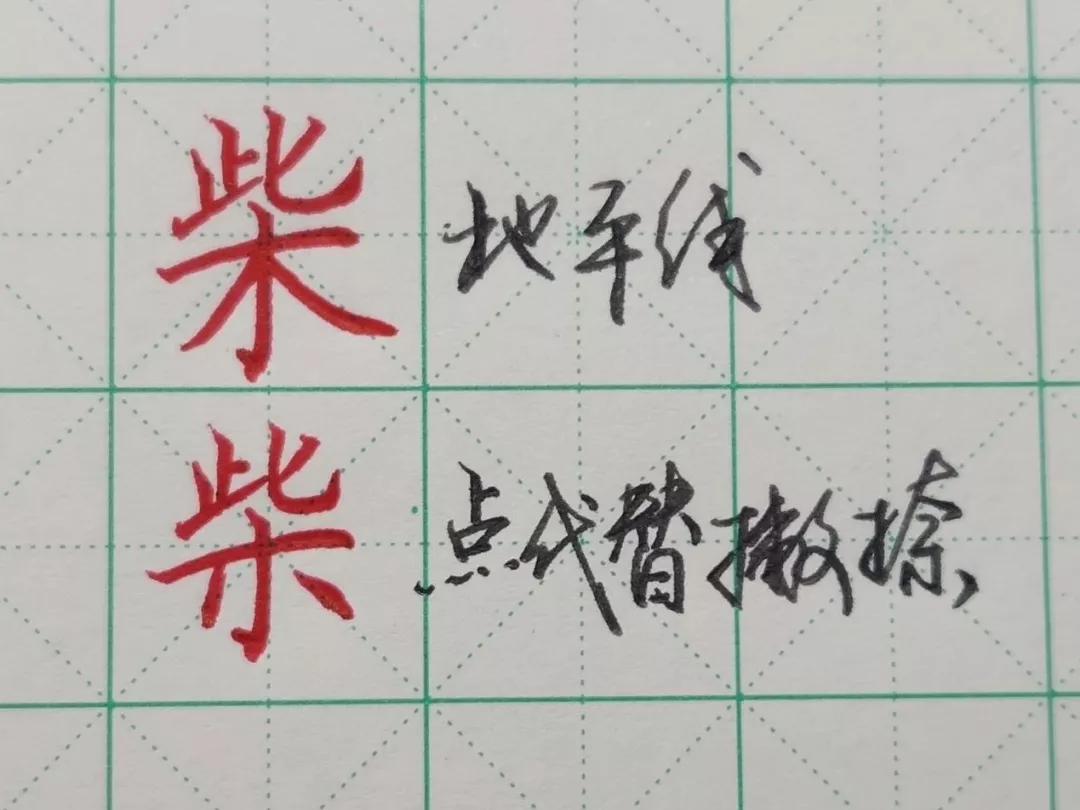 柴 地平线
柴 点代替撇捺